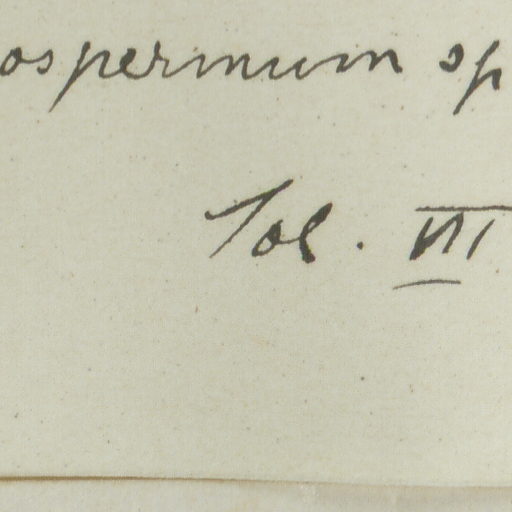 ospermum sp
Tol. VII